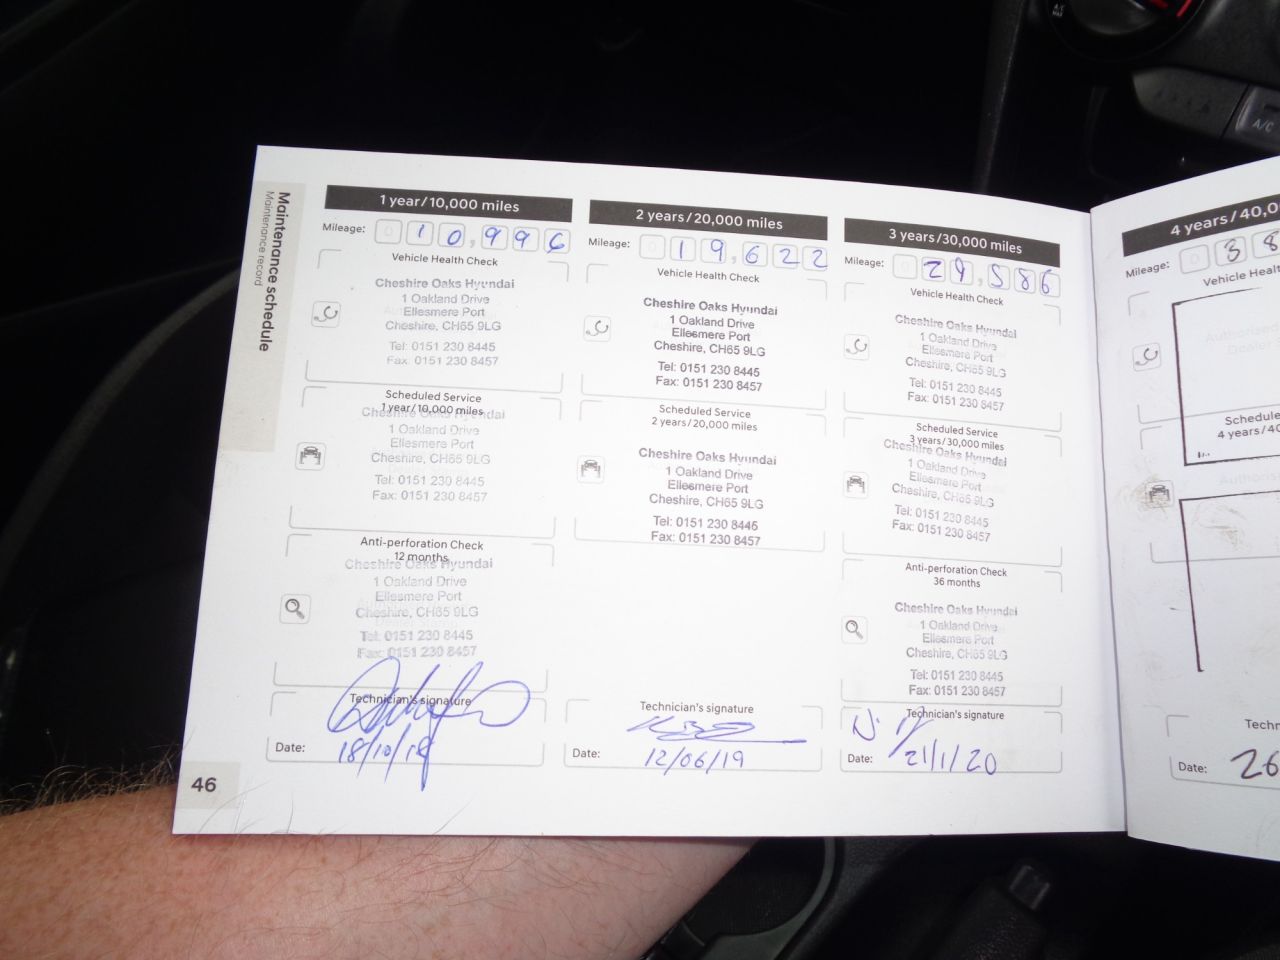 Maintenance schedule
Maintenance record
1 year/10,000 miles
Mileage: 010,996
Vehicle Health Check
Cheshire Oaks Hyundai
1 Oakland Drive
Ellesmere Port
Cheshire, CH65 9LG
Tel: 0151 230 8445
Fax: 0151 230 8457
Scheduled Service
1 year/10,000 miles
Cheshire Oaks Hyundai
1 Oakland Drive
Ellesmere Port
Cheshire, CH65 9LG
Tel: 0151 230 8445
Fax: 0151 230 8457
Anti-perforation Check
12 months
Cheshire Oaks Hyundai
1 Oakland Drive
Ellesmere Port
Cheshire, CH65 9LG
Tel: 0151 230 8445
Fax: 0151 230 8457
Technician's signature
Date: 18/10/18
46
2 years/20,000 miles
Mileage: 019,622
Vehicle Health Check
Cheshire Oaks Hyundai
1 Oakland Drive
Ellesmere Port
Cheshire, CH65 9LG
Tel: 0151 230 8445
Fax: 0151 230 8457
Scheduled Service
2 years/20,000 miles
Cheshire Oaks Hyundai
1 Oakland Drive
Ellesmere Port
Cheshire, CH65 9LG
Tel: 0151 230 8445
Fax: 0151 230 8457
Technician's signature
Date: 12/06/19
3 years/30,000 miles
Mileage: 029,586
Vehicle Health Check
Cheshire Oaks Hyundai
1 Oakland Drive
Ellesmere Port
Cheshire, CH65 9LG
Tel: 0151 230 8445
Fax: 0151 230 8457
Scheduled Service
3 years/30,000 miles
Cheshire Oaks Hyundai
1 Oakland Drive
Ellesmere Port
Cheshire, CH65 9LG
Tel: 0151 230 8445
Fax: 0151 230 8457
Anti-perforation Check
36 months
Cheshire Oaks Hyundai
1 Oakland Drive
Ellesmere Port
Cheshire, CH65 9LG
Tel: 0151 230 8445
Fax: 0151 230 8457
Technician's signature
Date: 21/1/20
4 years/40,0
Mileage: 038
Vehicle Healt
Authorised
Dealer
Schedule
4 years/40
Authoris
Techn
Date: 26
A/C